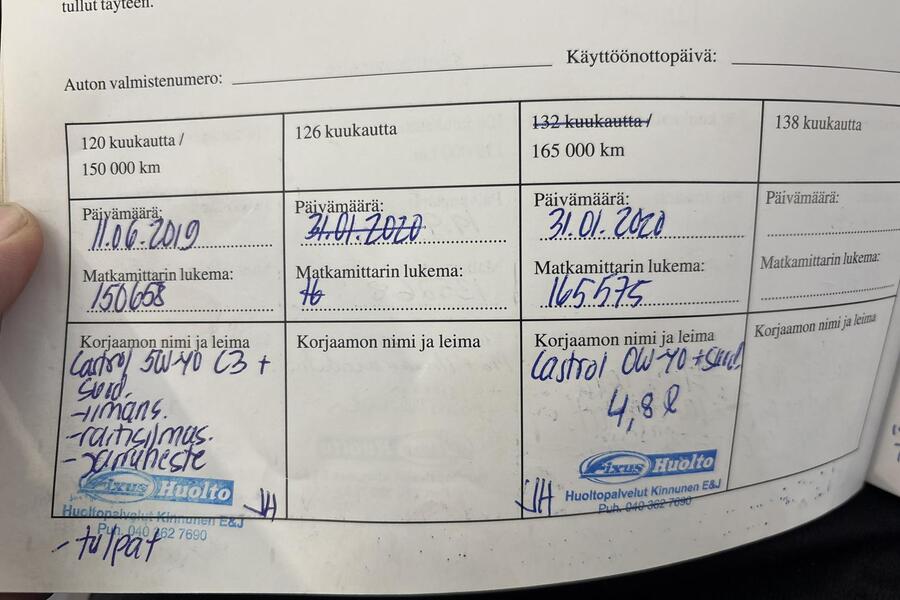 tullut täyteen.
Auton valmistenumero:
Käyttöönottopäivä:
120 kuukautta /
150 000 km
Päivämäärä:
11.06.2019
Matkamittarin lukema:
150658
Korjaamon nimi ja leima
Castrol 5W-40 C3 +
suod.
-ilmans.
-raitisilmas.
-jarruneste
Fixus Huolto
Huoltopalvelut Kinnunen E&J
Puh. 040 362 7690
JH
- tulpat
126 kuukautta
Päivämäärä:
31.01.2020
Matkamittarin lukema:
16
Korjaamon nimi ja leima
132 kuukautta /
165 000 km
Päivämäärä:
31.01.2020
Matkamittarin lukema:
165575
Korjaamon nimi ja leima
Castrol 0W-40 +suod.
4,8 l
Fixus Huolto
Huoltopalvelut Kinnunen E&J
Puh. 040 362 7690
JH
138 kuukautta
Päivämäärä:
Matkamittarin lukema:
Korjaamon nimi ja leima